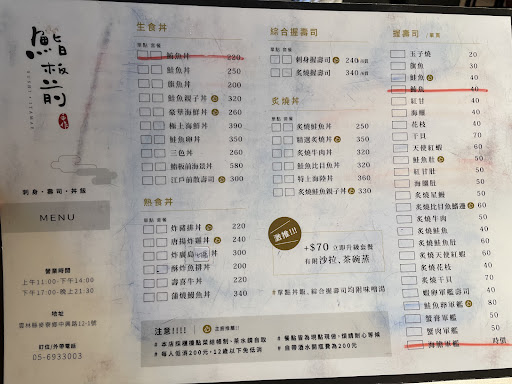 鮨板前
刺身·壽司·丼飯
MENU
營業時間
上午11:00-下午14:00
下午17:00-晚上21:30
地址
雲林縣麥寮鄉中興路12-1號
訂位/外帶電話
05-6933003
生食丼
單點 套餐
鮪魚丼 220
鮭魚丼 250
旗魚丼 200
鮭魚親子丼 320
豪華海鮮丼 260
極上海鮮丼 390
鮭魚卵丼 350
三色丼 260
鮨板前海景丼 580
江戶前散壽司 300
熟食丼
單點 套餐
炸豬排丼 220
唐揚炸雞丼 200
炸廣島 丼 240
酥炸魚排丼 200
壽喜牛丼 220
蒲燒鰻魚丼 340
綜合握壽司
單點 套餐
刺身握壽司 240
炙燒握壽司 340
炙燒丼
單點 套餐
炙燒鮭魚丼 250
精選炙燒丼 350
炙燒牛肉丼 320
鮭魚比目魚丼 350
特上海陸丼 360
炙燒鮭魚親子丼 330
激推!!!
+$70 立即升級套餐
有附沙拉、茶碗蒸
#單點丼飯、綜合握壽司均附味噌湯
握壽司 /單貫
玉子燒 20
旗魚 30
鮭魚 40
鮪魚 40
紅甘 40
海鱺 40
花枝 40
干貝 70
天使紅蝦 60
鮭魚肚 50
紅甘肚 50
海鱺肚 50
炙燒星鰻 50
炙燒比目魚鰭邊 60
炙燒牛肉 50
炙燒鮭魚 50
炙燒鮭魚肚 60
炙燒天使紅蝦 60
炙燒花枝 50
炙燒干貝 70
蝦卵軍艦壽司 50
鮭魚卵軍艦 60
蟹膏軍艦 50
蟹肉軍艦 50
海膽軍艦 時價
注意!!!! 店長推薦!!
#本店採櫃檯點菜結帳制、茶水請自取
#每人低消200元、12歲以下免低消
#餐點皆為現點現做、煩請耐心等候
#自帶酒水開瓶費為200元